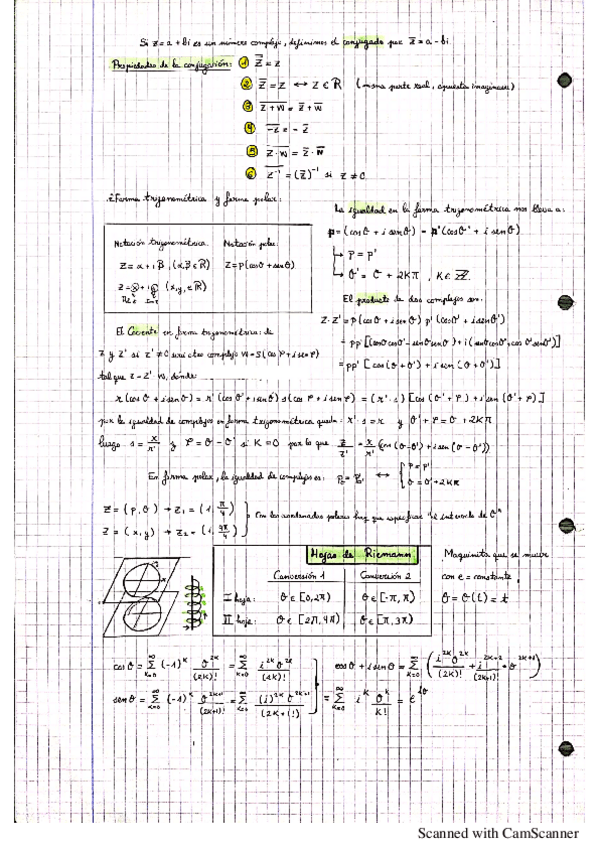 Si z = a + bi es un número complejo, definimos el conjugado por z̅ = a - bi
Propiedades de la conjugación: ① z̿ = z
② z̅ = z ↔ z ∈ ℝ (misma parte real, opuesta imaginaria)
③ \overline{z+w} = z̅ + w̅
④ \overline{-z} = - z̅
⑤ \overline{z·w} = z̅ · w̅
⑥ \overline{z^{-1}} = (z̅)^{-1} si z ≠ 0
Forma trigonométrica y forma polar:
La igualdad en la forma trigonométrica nos lleva a:
p = (cos θ + i sen θ) = p'(cos θ' + i sen θ)
↳ p = p'
↳ θ' = θ + 2Kπ , K ∈ ℤ
Notación trigonométrica. Notación polar:
z = α + iβ, (α, β ∈ ℝ) z = p(cos θ + sen θ)
z = x + iy (x, y ∈ ℝ)
Re z Im z
El producto de dos complejos son:
z · z' = p(cos θ + i sen θ) p'(cos θ' + i sen θ')
= pp' [(cos θ cos θ' - sen θ sen θ') + i(sen θ cos θ', cos θ' sen θ')]
= pp' [cos(θ + θ') + i sen(θ + θ')]
El Cociente en forma trigonométrica: de
z y z' si z' ≠ 0 será otro complejo w = s(cos φ + i sen φ)
tal que z = z' w, donde
r(cos θ + i sen θ) = r'(cos θ' + i sen θ') s(cos φ + i sen φ) = (r' · s) [cos(θ' + φ) + i sen(θ' + φ)]
por la igualdad de complejos en forma trigonométrica queda: r' · s = r y θ' + φ = θ + 2Kπ
luego s = r/r' y φ = θ - θ' si K = 0 por lo que z/z' = r/r' (cos(θ - θ') + i sen(θ - θ'))
En forma polar, la igualdad de complejos es: ↔ { p = p'
θ = θ' + 2Kπ
z = (p, θ) → z₁ = (1, π/4)
z = (x, y) → z₂ = (1, 9π/4)
Con las coordenadas polares hay que especificar "el intervalo de θ"
Hojas de Riemann
Conversión 1 Conversión 2
I hoja: θ ∈ [0, 2π) θ ∈ [-π, π)
II hoja: θ ∈ [2π, 4π) θ ∈ [π, 3π)
Maquinita que se mueve
con e = constante
θ = θ(t) = t
cos θ = ∑_{k=0}^{∞} (-1)^k θ^{2k}/(2k)! = ∑_{k=0}^{∞} i^{2k} θ^{2k}/(2k)!
sen θ = ∑_{k=0}^{∞} (-1)^k θ^{2k+1}/(2k+1)! = ∑_{k=0}^{∞} (i)^{2k} θ^{2k+1}/(2k+1)!
cos θ + i sen θ = ∑_{k=0}^{∞} (i^{2k} θ^{2k}/(2k)! + i^{2k+1}/(2k+1)! · θ^{2k+1})
= ∑_{k=0}^{∞} i^k θ^k/k! = e^{iθ}
Scanned with CamScanner